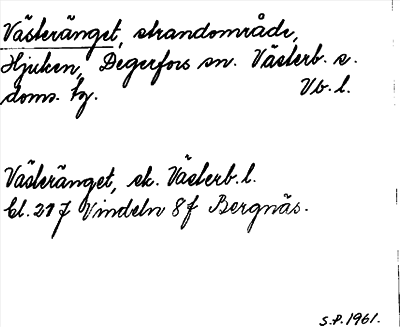 Västeränget, strandområde,
Hjuken, Degerfors sn. Västerb. s.
doms. tg. Vb. l.
Västeränget, sk. Västerb. l.
bl. 21 J Vindeln 8 f Bergnäs.
S.P. 1961.